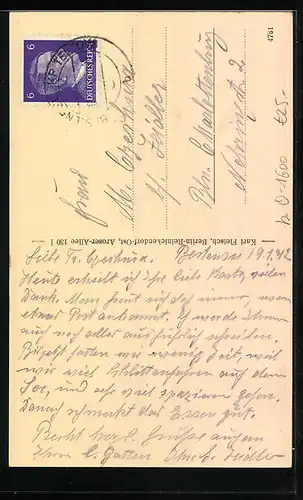 4781
6 DEUTSCHES REICH 6
Frau
M. Czerknia
b/ Fiedler
Bln. Charlottenburg
2
h O-1600 €25.-
Karl Fleisch, Berlin-Reinickendorf-Ost, Aroser-Allee 130 I
19.1.42
Liebe Fr. Czerknia.
Heute erhielt ich Ihre liebe Karte, vielen
Dank. Man freut sich doch immer, wenn
etwas Post ankommt. Ich werde Ihnen
auch noch alles ausführlich schreiben.
Bis jetzt hatten wir wenig Zeit, weil
wir viel Schlittenfahren auf dem
See, und sehr viel spazieren gehen.
Danach schmeckt das Essen gut.
Recht herzl. Grüße auch an
Ihren l. Gatten Ihre